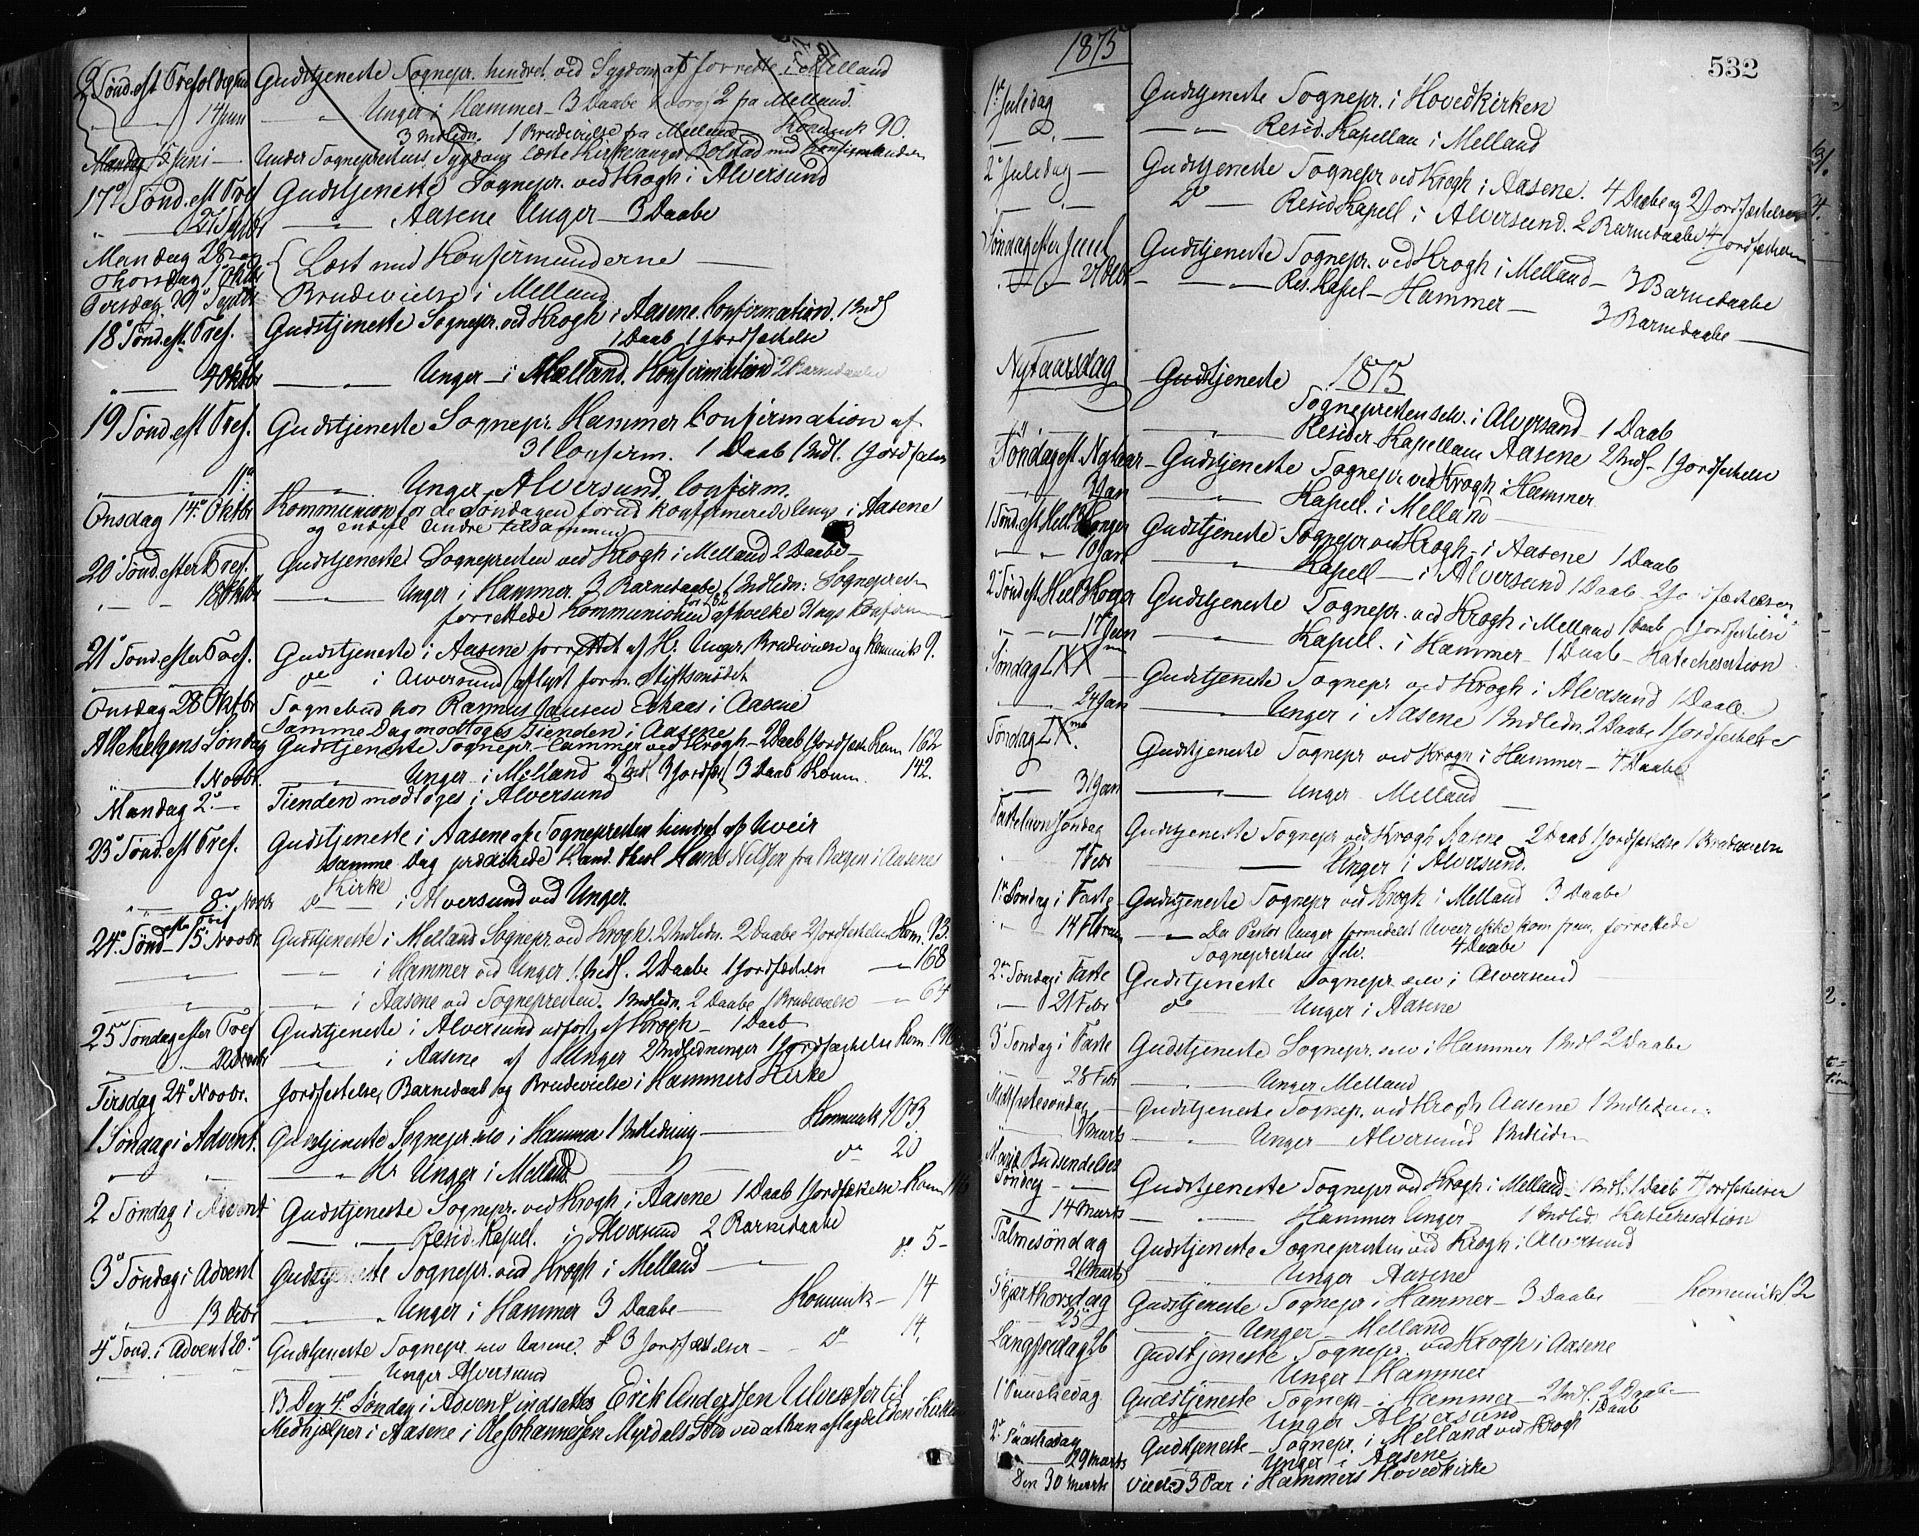 Gudstjeneste Sognepr. hindret ved Sygdom at forrette i Melland
14 Juni Unger i Hammer 3 Daabe 2 fra Melland.
3 Indledn. 1 Brudevielse fra Melland Komunik 90.
Mandag 15 Juni Under Sogneprestens Sygdom læste Kirkesanger Bolstad med Konfirmanderne
17de Sønd. eft Tref Gudstjeneste Sognepr. ved Krogh i Alversund
27 Septbr Aasene Unger 3 Daabe
Mandag 28 og Læst med Konfirmanderne
Thorsdag 1 Oktbr
Tirsdag 29 Septbr Brudevielse i Melland
18 Sønd. eft. Tref. Gudstjeneste Sognepr. ved Krogh i Aasene. Confirmation. 1 Indl
1 Daab 1 Jordfæstelse
4 Oktbr Unger i Melland. Konfirmation 2 Barnedaabe
19 Sønd. eft Tref. Gudstjeneste Sognepr. Hammer Confirmation af
31 Confirm. 1 Daab 1 Indl. 1 Jordfæstn
11te Unger Alversund Confirm.
Onsdag 14 Oktbr Kommunion for de Søndagen forud konfirmerede Unge i Aasene
og endeel Andre tilsammen
20 Sønd. efter Tref. Gudstjeneste Sognepresten ved Krogh i Melland 2 Daabe
18 Oktbr Unger i Hammer. 3 Barnedaabe 1 Indledn: Sognepresten
forrettede Kommunionen for 82 af hvilke 31 nys Confirm
21 Sønd. efter Tref. Gudstjeneste i Aasene forrettet af H. Unger Brudevielse og Komunik 9.
do i Alversund aflyst form. Stiftsmødet
Onsdag 28 Oktbr Sognebud hos Rasmus Hansen Eikaas i Aasene
Samme Dag modtoges Tienden i Aasene
Allehelgens Søndag Gudstjeneste Sognepr. Hammer ved Krogh 2 Daab 1 Jordfæst Kom 162
1 Novbr. Unger i Melland 2 Indl. 9 Jordfæst 3 Daab Komm. 142.
Mandag 2 Tienden modtoges i Alversund
23 Sønd. eft Tref. Gudstjeneste i Aasene af Sognepresten hindret af Uveir
samme Dag prædikede Kand. theol Hans Nielsen fra Bergen i Aasene
Kirke
8 Novbr do i Alversund ved Unger.
24 Sønd eft Tref 15 Novbr. Gudstjeneste i Melland Sognepr. ved Krogh. 2 Indledn. 2 Daabe 2 Jordfæstelser Kom. 93.
i Hammer ved Unger 1 Indl. 2 Daabe 1 Jordfæstelse 168
i Aasene ved Sognepresten. 1 Indledn. 2 Daabe 1 Brudevielse 64
25 Søndag efter Tref Gudstjeneste i Alversund udført af Krogh 1 Daab
22 Novbr i Aasene af Unger 2 Indledninger 1 Jordfæstelse Kom.
Tirsdag 24 Novbr. Jordfæstelse, Barnedaab og Brudevielse i Hammers Kirke
1 Søndag i Advent. Gudstjeneste Sognepr. selv i Hammer 1 Indledning Komunik 103.
Hr Unger i Melland do 20
2 Søndag i Advent Gudstjeneste Sognepr. ved Krogh i Aasene 1 Daab 1 Jordfæstelse Kom
Resid. Kapel. i Alversund 2 Barnedaabe do 5
3 Søndag i Advent Gudstjeneste Sognepr. ved Krogh i Melland
13 Decbr Unger i Hammer 3 Daabe Komunik 14
4 Sønd. i Advent 20 Gudstjeneste Sognepr. selv Aasene. 3 Jordfæstelser do 14.
Unger Alversund
Den 4 Søndag i Advent indsattes Erik Andersen Ulvesæter til
Medhjælper i Aasene i Ole Johannesen Myrdals Sted ved at han aflagde Eden i Kirken
1875
532
1 Juledag Gudstjeneste Sognepr. i Hovedkirken
Resid. Kapellan i Melland
2 Juledag Gudstjeneste Sognepr ved Krogh i Aasene. 4 Daabe og 2 Jordfæstelser
do Resid. Kapell i Alversund. 2 Barnedaabe 4 Jordfæstelser
Søndag efter Juul Gudstjeneste Sognepr. ved Krogh i Melland 3 Barnedaabe
27 Decbr Res. Kapel Hammer 3 Barnedaabe
1875
Nytaarsdag Gudstjeneste Sognepresten selv. i Alversund 1 Daab
Resider. Kapellan Aasene 2 Indl 1 Jordfæstelse
Søndag eft Nytaar Gudstjeneste Sognepr. ved Krogh i Hammer
3 Jan Kapell. i Melland
1 Sønd. eft Hell 3 Konger Gudstjeneste Sognepr ved Krogh i Aasene 1 Daab
10 Jan Kapell i Alversund 1 Daab 2 Jordfæstelser
2 Sønd. eft. Hell 3 Konger Gudstjeneste Sognepr. ved Krogh i Melland 1 Daab Jordfæstelse
17 Jan Kapell. i Hammer 1 Daab Katechesation
Søndag LXX Gudstjeneste Sognepr ved Krogh i Alversund 1 Daab.
24 Jan Unger i Aasene 1 Indledn. 2 Daabe 1 Jordfæstelse
Søndag LX Gudstjeneste Sognepr ved Krogh i Hammer 4 Daabe
31 Jan Unger Melland
Fastelavns Søndag Gudstjeneste Sognepr ved Krogh Aasene 2 Daab 1 Jordfæstelse 1 Brudevielse
7 Febr Unger i Alversund.
1 Søndag i Faste Gudstjeneste Sognepr ved Krogh i Melland 3 Daabe
14 Febr Da Pastor Unger formedelst Uveir ikke kom frem, forrettede
Sognepresten selv. 4 Daabe
2 Søndag i Faste Gudstjeneste Sognepr. selv i Alversund
21 Febr do Unger i Aasene
3 Søndag i Faste Gudstjeneste Sognepr. selv i Hammer 1 Indl 2 Daabe
28 Febr Unger Melland
Midfastesøndag Gudstjeneste Sognepr. ved Krogh Aasene 1 Indledn:
7 Marts Unger Alversund Indledn
Mariæ Budskabelses
Søndag Gudstjeneste Sognepr ved Krogh i Melland 1 Indl. 1 Daab 4 Jordfæstelser
14 Marts Hammer Unger 1 Indled. Katechesation
Palmesøndag Gudstjeneste Sognepresten ved Krogh i Alversund
21 Marts Unger Aasene
Skjærthorsdag Gudstjeneste Sognepr i Hammer 3 Daabe Komunik 12
25 Unger Melland
Langfredag 26 Gudstjeneste Sognepr. ved Krogh i Aasene
Unger Hammer
1 Paaskedag Gudstjeneste Sognepr. i Hammer 2 Indl. 2 Daabe
do Unger Alversund 1 Daab
2 Paaskedag Gudstjeneste Sognepr. i Melland ved Krogh
29 Marts Unger i Aasene
Den 30 Marts viedes 3 Par i Hammers Hovedkirke